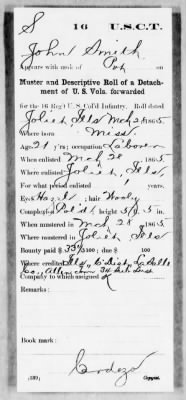 S 16 U.S.C.T.
John Smith
Appears with rank of Pvt on
Muster and Descriptive Roll of a Detach-
ment of U. S. Vols. forwarded
for the 16 Reg't U. S. Col'd Infantry. Roll dated
Joliet Ills Mch 28, 1865.
Where born Miss.
Age 21 y'rs; occupation Laborer
When enlisted Mch 28, 1865.
Where enlisted Joliet, Ills.
For what period enlisted years.
Eyes Hazel; hair Wooly
Complexion Col'd; height 5 ft. 5 in.
When mustered in Mch 28, 1865.
Where mustered in Joliet Ills
Bounty paid $ 33 100; due $ 100
Where credited Ills, 6 Dist, La Salle
Co., Allen 34 Sub Dist
Company to which assigned K
Remarks:
Book mark:
(339) Copyist.